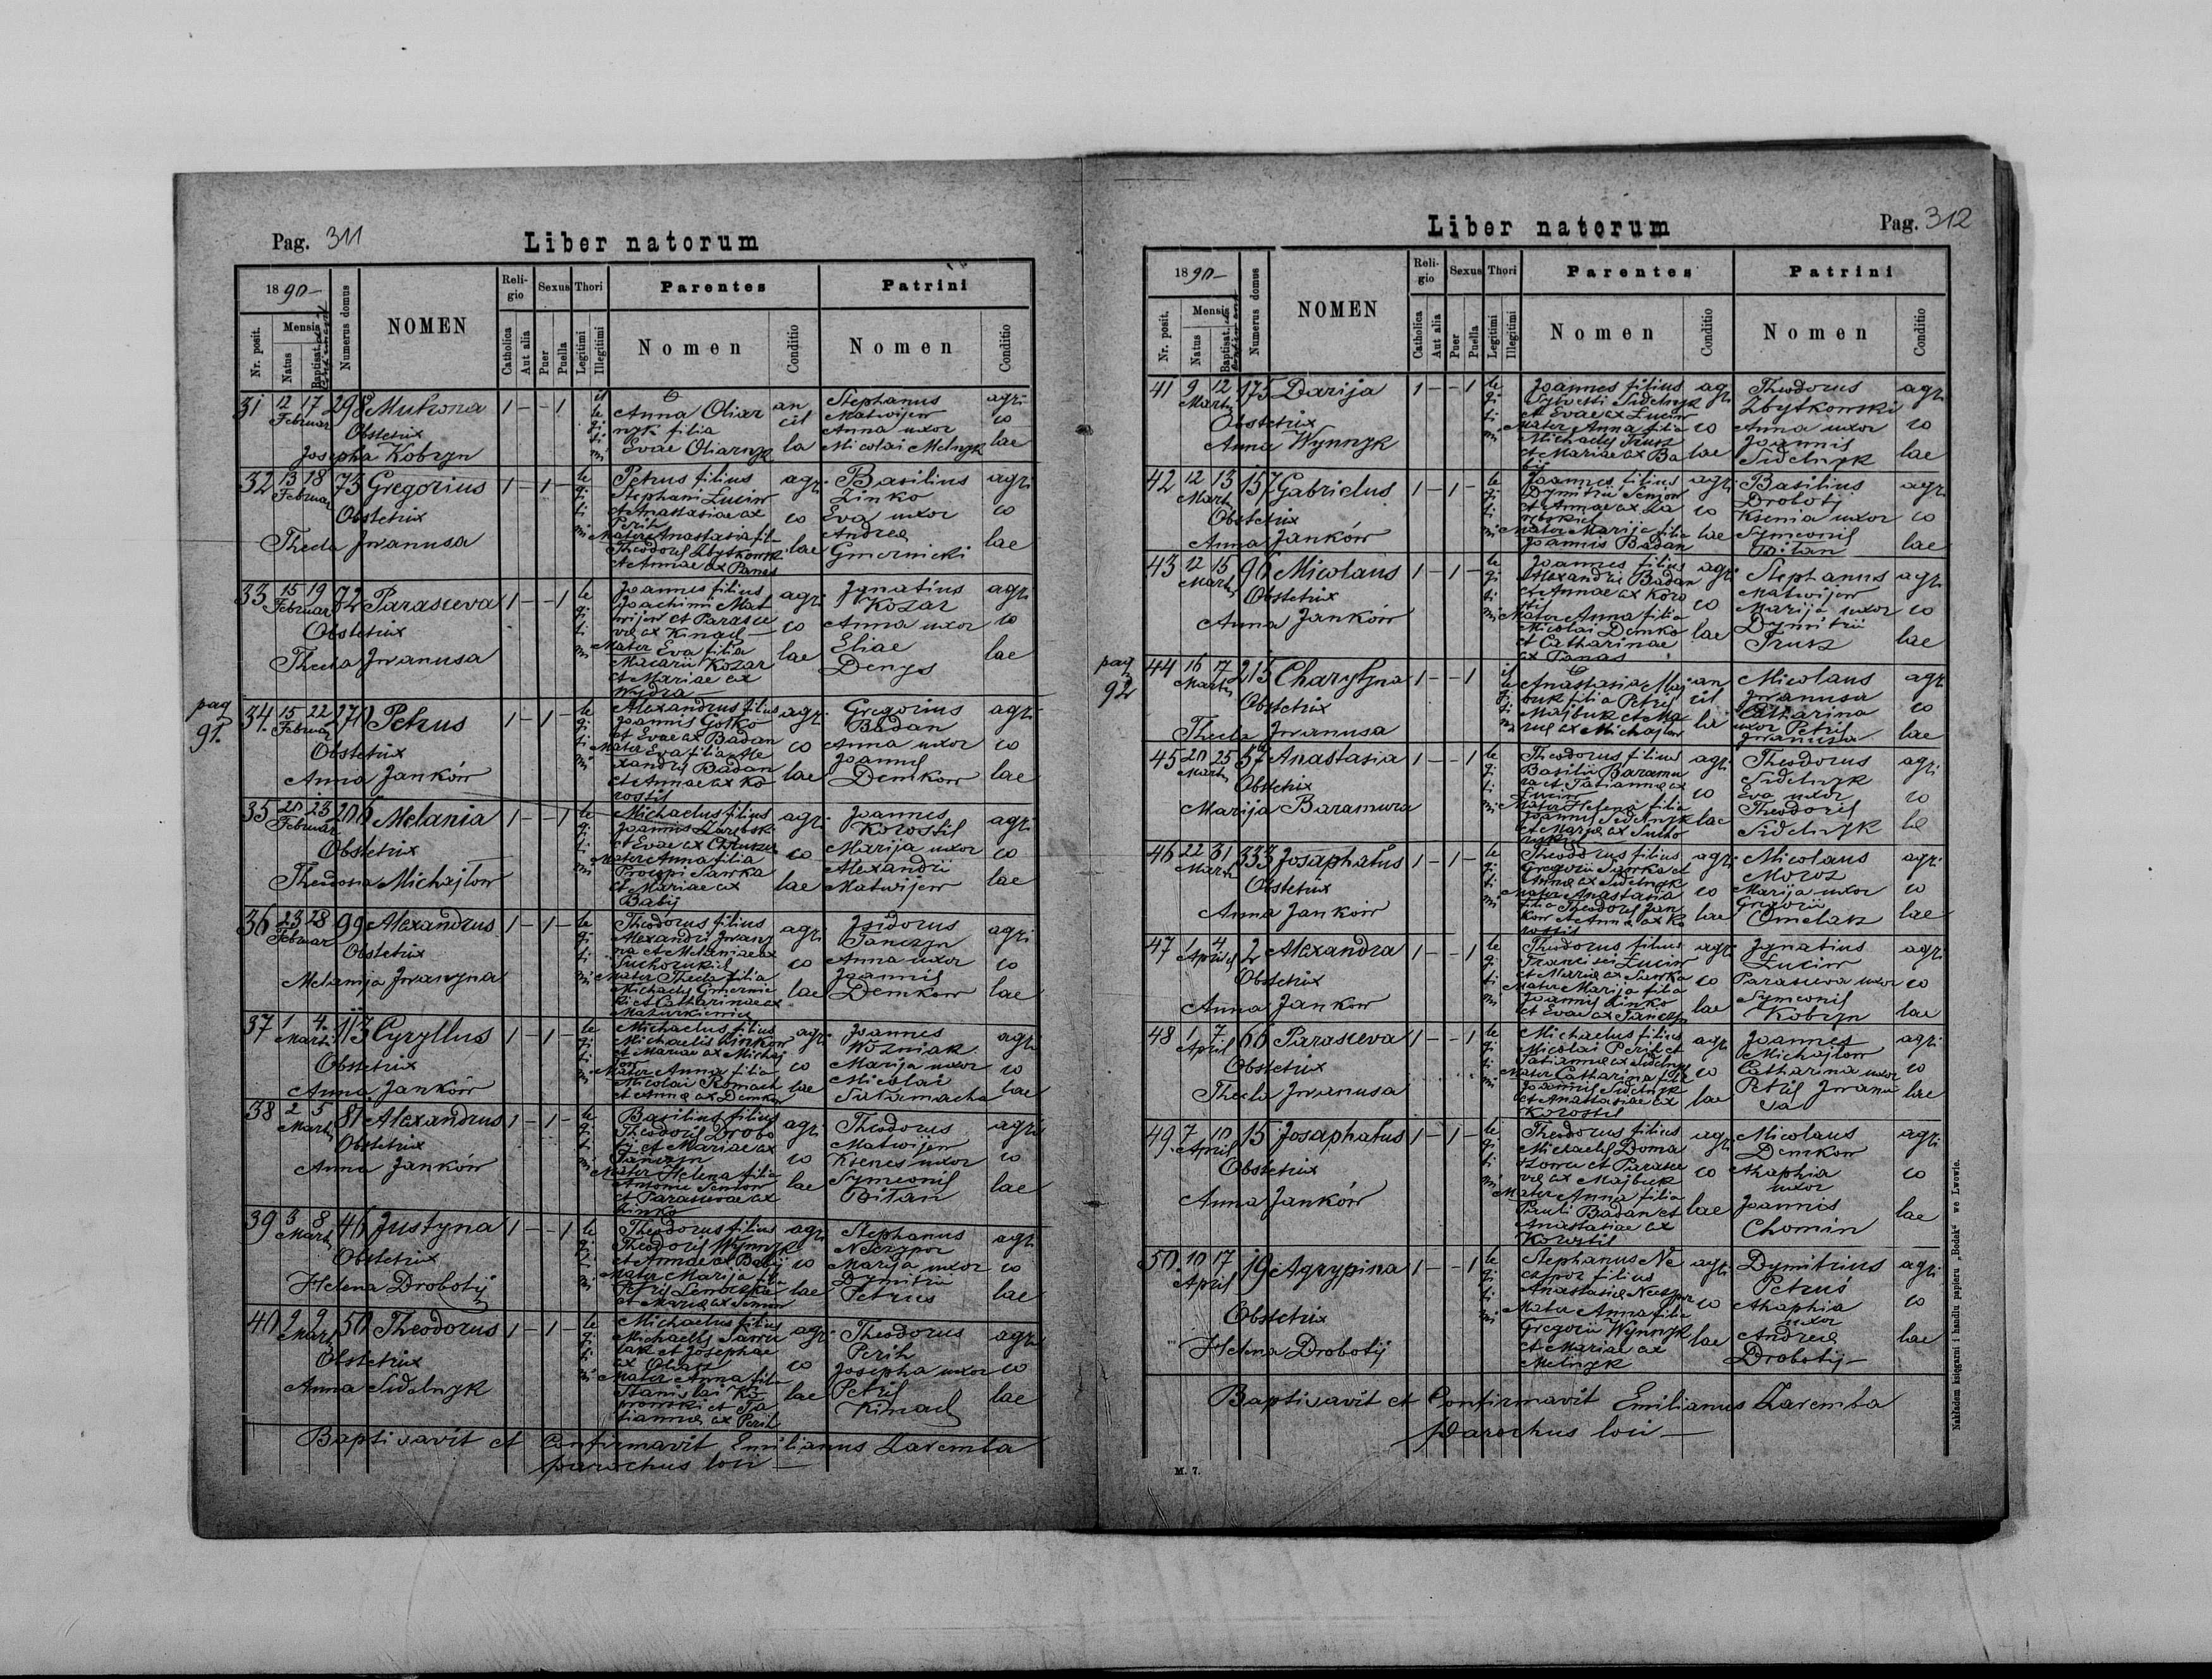 Pag. 311
Liber natorum
1890
Nr. posit.
Mensis
Natus
Baptisat.
Numerus domus
NOMEN
Religio
Catholica
Aut alia
Sexus
Puer
Puella
Thori
Legitimi
Illegitimi
Parentes
Nomen
Conditio
Patrini
Nomen
Conditio
31 12 17 298 Mutrona 1 - - 1
Februar
Obstetrix
Josepha Kobryn
Anna Oliar
nyk filia
Evae Oliarnyk
an
cil
la
Stephanus
Matwijew
Anna uxor
Nicolai Melnyk
agri
co
lae
32 13 18 73 Gregorius 1 - 1 -
Februar
Obstetrix
Thecla Iwanusa
Petrus filius
Stephani Luciw
et Anastasiae ex
Perih
Mater Anastasia fil-
Theodori Zbytkowsk
et Annae ex Panas
agri
co
lae
Basilius
Zinko
Eva uxor
Andreae
Gmernicki
agri
co
lae
33 15 19 72 Parasceva 1 - - 1
Februar
Obstetrix
Thecla Iwanusa
Joannes filius
Joachimi Mat
wijew et Parasce
vae ex Kinach
Mater Eva filia
Macarii Kozar
et Mariae ex
Wydra
agri
co
lae
Ignatius
Kozar
Anna uxor
Eliae
Denys
agri
co
lae
pag
91.
34. 15 22 270 Petrus 1 - 1 -
Februar
Obstetrix
Anna Janków
Alexandrus filius
Joannis Gotko
et Evae ex Badan
Mater Eva filia Ale
xandri Badan
et Annae ex Ko
rostil
agri
co
lae
Gregorius
Badan
Anna uxor
Joannis
Demkow
agri
co
lae
35 20 23 206 Melania 1 - - 1
Februar
Obstetrix
Theodosia Michajlow
Michaelus filius
Joannis Zarebski
et Evae ex
Mater Anna filia
Procopi Sawka
et Mariae ex
Babij
agri
co
lae
Joannes
Korostil
Marija uxor
Alexandri
Matwijew
agri
co
lae
36 23 28 99 Alexandrus 1 - 1 -
Februar
Obstetrix
Melanija Iwanyna
Theodorus filius
Alexandri Iwany
na et Melaniae ex
Suchorukich
Mater Thecla filia
Michaelis Gmernic
ki et Catharinae ex
Maturkiewicz
agri
co
lae
Isidorus
Tanczyn
Anna uxor
Joannis
Demkow
agri
co
lae
37 1 4 113 Cyryllus 1 - 1 -
Marti
Obstetrix
Anna Janków
Michaelus filius
Michaelis Zinkow
et Mariae ex Michaj
low
Mater Anna filia
Nicolai Romach
et Annae ex Demkow
agri
co
lae
Joannes
Wozniak
Marija uxor
Nicolai
Salamacha
agri
co
lae
38 2 5 81 Alexandrus 1 - 1 -
Martii
Obstetrix
Anna Janków
Basilius filius
Theodori Drobo
tij et Mariae ex
Tanczyn
Mater Helena filia
Antonii Semiow
et Parascevae ex
Zinko
agri
co
lae
Theodorus
Matwijew
Ksenes uxor
Symeonis
Bitan
agri
co
lae
39 3 8 46 Justyna 1 - - 1
Martii
Obstetrix
Helena Drobotij
Theodorus filius
Theodori Wynnyk
et Annae ex Babij
Mater Marija filia
Petri
et Mariae ex Semiow
agri
co
lae
Stephanus
Neczypor
Marija uxor
Dymitrii
Petrus
agri
co
lae
40 2 9 50 Theodorus 1 - 1 -
Martii
Obstetrix
Anna Sidelnyk
Michaelus filius
Michaelis Sawru
lak et Josephae
ex
Mater Anna filia
Stanislai Ko
prowski et Ta
tiannae ex Perih
agri
co
lae
Theodorus
Perih
Josepha uxor
Petri
Kinach
agri
co
lae
Baptisavit et Confirmavit Emilianus Zaremba
parochus loci
Pag. 312
Liber natorum
1890
Nr. posit.
Mensis
Natus
Baptisat.
Numerus domus
NOMEN
Religio
Catholica
Aut alia
Sexus
Puer
Puella
Thori
Legitimi
Illegitimi
Parentes
Nomen
Conditio
Patrini
Nomen
Conditio
41 9 12 175 Darija 1 - - 1
Martii
Obstetrix
Anna Wynnyk
Joannes filius
Sylvestri Sidelnyk
et Evae ex Luciw
Mater Anna filia
Michaelis Trusz
et Mariae ex Ba
bij
agri
co
lae
Theodorus
Zbytkowski
Anna uxor
Joannis
Sidelnyk
agri
co
lae
42 12 13 157 Gabrielus 1 - 1 -
Martii
Obstetrix
Anna Janków
Joannes filius
Dymitrii Semiow
et Annae ex Za
rebskich
Mater Marija filia
Joannis Badan
agri
co
lae
Basilius
Drobotij
Ksenia uxor
Symeonis
Bitan
agri
co
lae
43 12 15 96 Nicolaus 1 - 1 -
Martii
Obstetrix
Anna Janków
Joannes filius
Alexandri Badan
et Annae ex Koro
stil
Mater Anna filia
Nicolai Demko
et Catharinae
ex Panas
agri
co
lae
Stephanus
Matwijew
Marija uxor
Dymitrii
Trusz
agri
co
lae
pag
92
44 16 17 215 Charytyna 1 - - 1
Martii
Obstetrix
Thecla Iwanusa
Anastasia Maj
buk filia Petri
Majbuk et Ma
riae ex Michajlow
an
cil
la
Nicolaus
Iwanusa
Catharina
uxor Petri
Iwanusa
agri
co
lae
45 20 25 57 Anastasia 1 - - 1
Martii
Obstetrix
Marija Baramura
Theodorus filius
Basilii Baramu
ra et Tatiannae ex
Luciw
Mater Helena filia
Joannis Sidelnyk
et Mariae ex Sucho
rukich
agri
co
lae
Theodorus
Sidelnyk
Eva uxor
Theodori
Sidelnyk
agri
co
46 22 31 333 Josaphatus 1 - 1 -
Martii
Obstetrix
Anna Janków
Theodorus filius
Gregorii Sawka et
Annae ex Sidelnyk
Mater Anastasia
filia Theodori Jan
kow et Annae ex Ko
rostil
agri
co
lae
Nicolaus
Moroz
Marija uxor
Gregorii
Omelan
agri
co
lae
47 1 4 2 Alexandra 1 - - 1
Aprilis
Obstetrix
Anna Jankow
Theodorus filius
Francisci Luciw
et Mariae ex Sawka
Mater Marija filia
Joannis Zinko
et Evae ex Tanczyn
agri
co
lae
Ignatius
Luciw
Parasceva uxor
Symeonis
Kobryn
agri
co
lae
48 1 7 66 Parasceva 1 - - 1
April
Obstetrix
Thecla Iwanusa
Michaelus filius
Nicolai Perih et
Tatiannae ex Sidelnyk
Mater Catharina filia
Joannis Sidelnyk
et Anastasiae ex
Korostil
agri
co
lae
Joannes
Michajlow
Catharina uxor
Petri Iwanu
sa
agri
co
lae
49. 7 10 15 Josaphatus 1 - 1 -
April
Obstetrix
Anna Janków
Theodorus filius
Michaelis Doma
szowu et Parasce
vae ex Majbuk
Mater Anna filia
Pauli Badan et
Anastasiae ex
Korostil
agri
co
lae
Nicolaus
Demkow
Ahaphia
uxor
Joannis
Chomin
agri
co
lae
50. 10 17 19 Agrypina 1 - - 1
April
Obstetrix
Helena Drobotij
Stephanus Ne
czypor filius
Anastasiae Neczypor
Mater Anna filia
Gregorii Wynnyk
et Mariae ex
Melnyk
agri
co
lae
Dymitrius
Petrus
Ahaphia
uxor
Andreae
Drobotij
agri
co
lae
Baptisavit et Confirmavit Emilianus Zaremba
Parochus loci
M. 7.
Nakładem księgarni i handlu papieru „Bodek" we Lwowie.